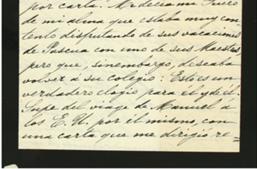 por carta. Me decia me
de mi alma que estaba muy con-
tento disfrutando de sus vacaciones
de Pascua con uno de sus Maestros
pero que, sinembargo, deseaba
volver á su colegio: Este es un
verdadero elogio para él y
Supe del viage de Manuel á
los E. U. por él mismo, con
una carta que me dirigió re-